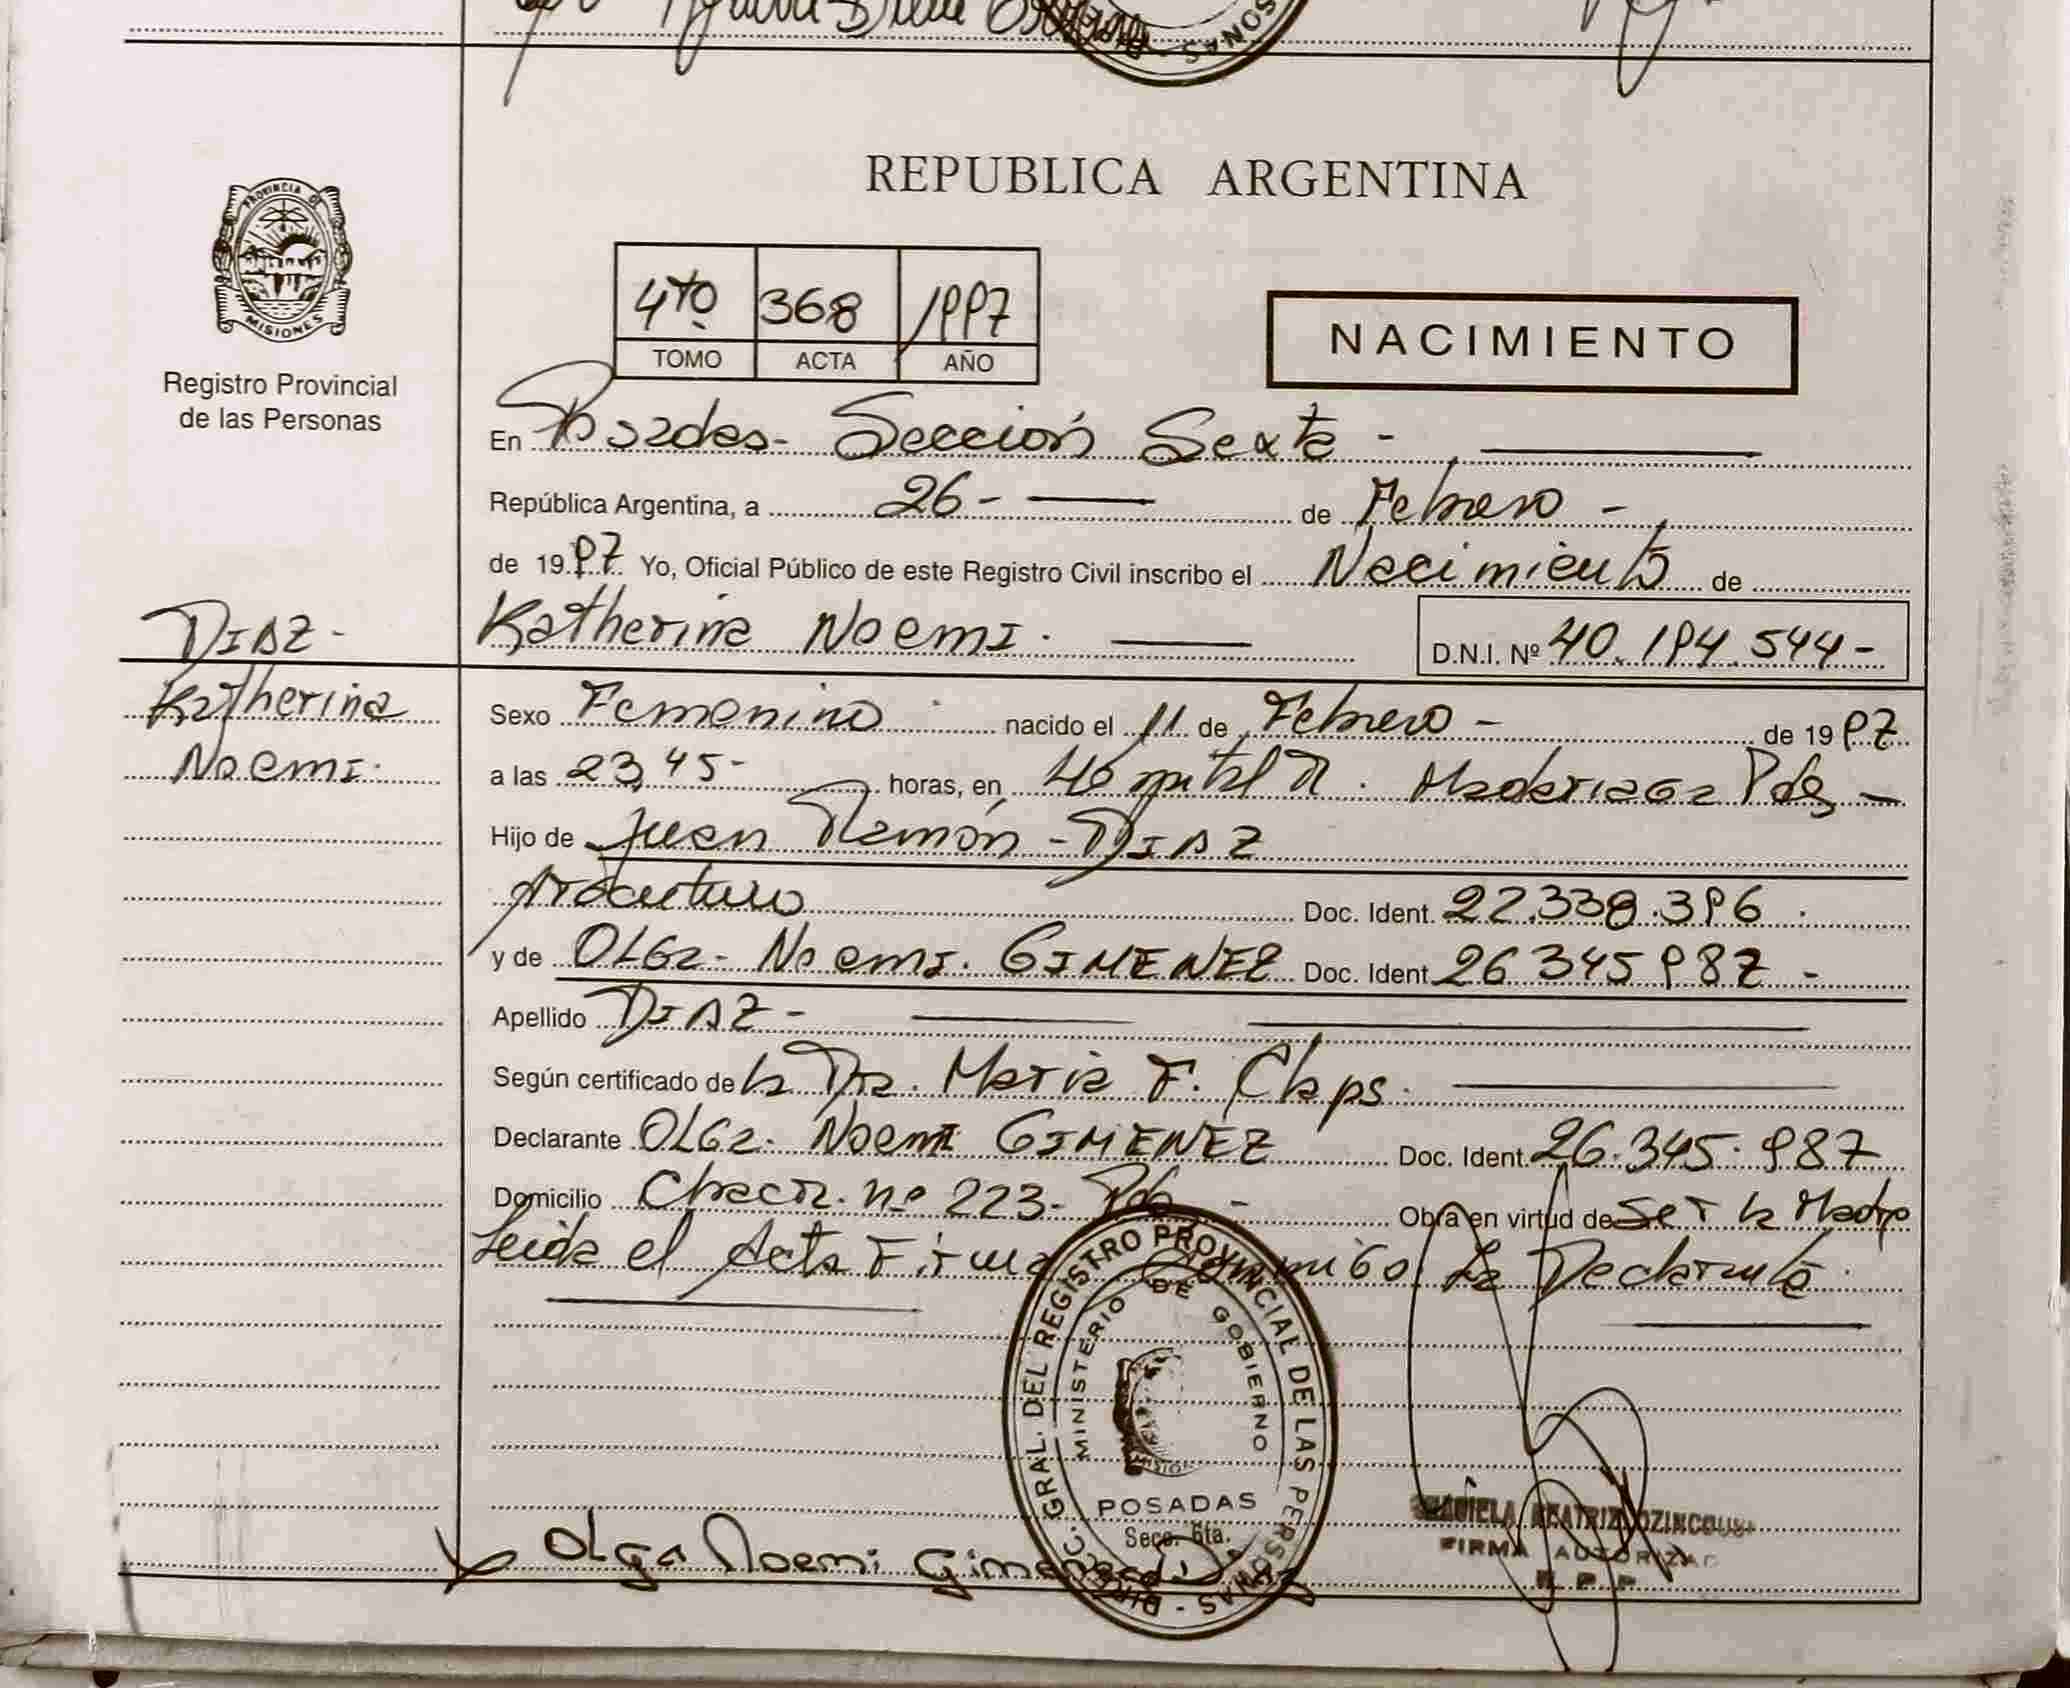 PROVINCIA DE
MISIONES
Registro Provincial
de las Personas
REPUBLICA ARGENTINA
4to 368 1997
TOMO ACTA AÑO
NACIMIENTO
En Posadas - Sección Sexta -
República Argentina, a 26 - de Febrero -
de 1997 Yo, Oficial Público de este Registro Civil inscribo el Nacimiento de
Katherina Noemi. D.N.I. Nº 40.194.544 -
DIAZ -
Katherina
Noemi.
Sexo Femenino nacido el 11 de Febrero - de 1997
a las 23,45 - horas, en Hospital R. Madariaga Pdas -
Hijo de Juan Ramón - DIAZ
Doc. Ident. 22.338.396.
y de OLGa - Noemi. GIMENEZ Doc. Ident. 26 345 987 -
Apellido DIAZ -
Según certificado de la Dra. Maria F. Claps.
Declarante OLGa. Noemi GIMENEZ Doc. Ident. 26.345.987
Domicilio Chacra. nº 223 - Pdas - Obra en virtud de Ser la Madre
Leida el Acta Firma Conmigo La Declarante.
DIREC. GRAL. DEL REGISTRO PROVINCIAL DE LAS PERSONAS -
MINISTERIO DE GOBIERNO
POSADAS
Secc. 6ta.
Olga Noemi Gimenez
BEATRIZ
FIRMA AUTORIZAD
R. P. P.